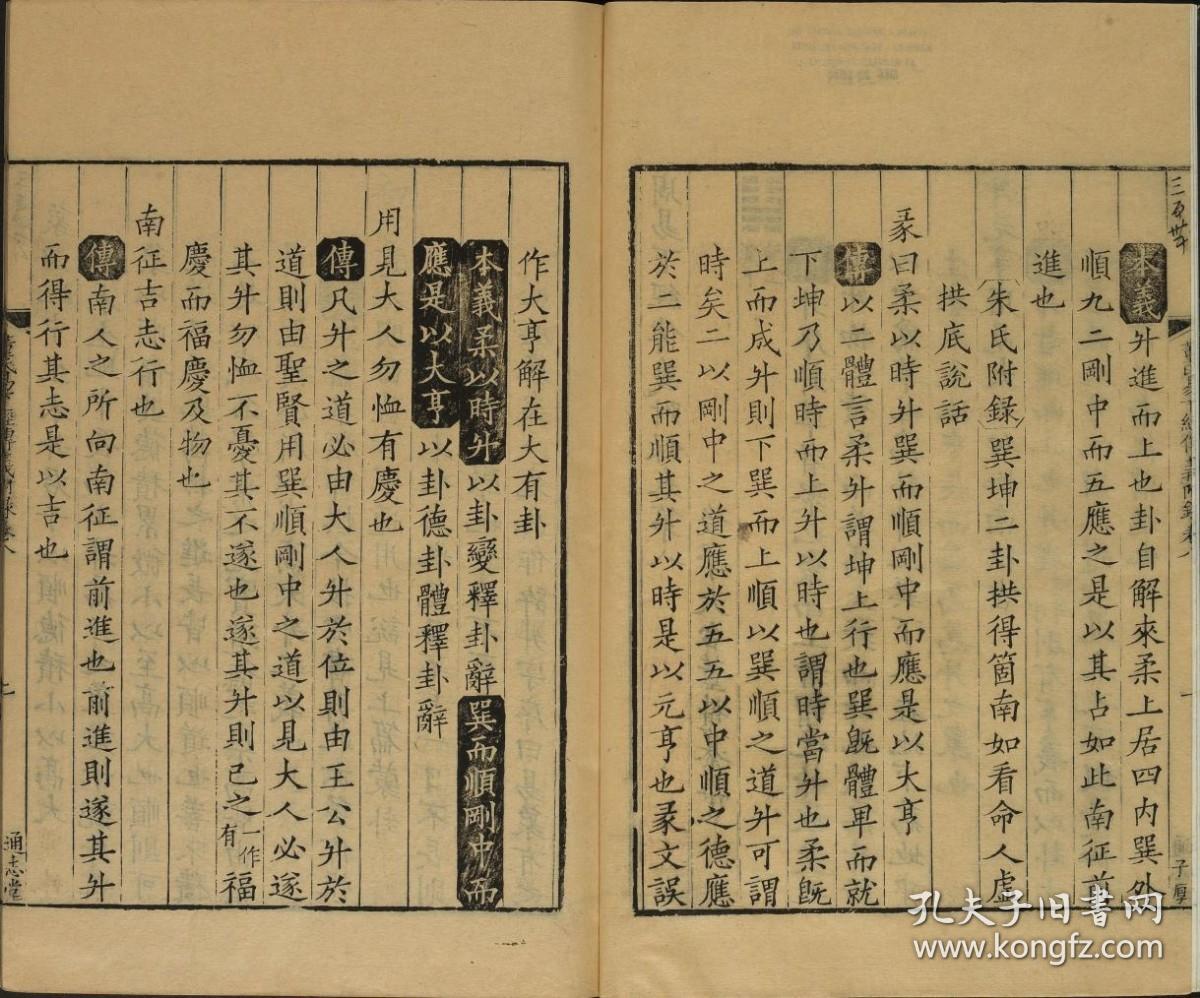 本義升進而上也卦自解來柔上居四内巽外
順九二剛中而五應之是以其占如此南征前
進也
朱氏附録巽坤二卦拱得箇南如看命人虚
拱底說話
彖曰柔以時升巽而順剛中而應是以大亨
傳以二體言柔升謂坤上行也巽旣體卑而就
下坤乃順時而上升以時也謂時當升也柔旣
上而成升則下巽而上順以巽順之道升可謂
時矣二以剛中之道應於五五以中順之德應
於二能巽而順其升以時是以元亨也彖文誤
作大亨解在大有卦
本義柔以時升以卦變釋卦辭巽而順剛中而
應是以大亨以卦德卦體釋卦辭
用見大人勿恤有慶也
傳凡升之道必由大人升於位則由王公升於
道則由聖賢用巽順剛中之道以見大人必遂
其升勿恤不憂其不遂也遂其升則己之一作有福
慶而福慶及物也
南征吉志行也
傳南人之所向南征謂前進也前進則遂其升
而得行其志是以吉也
通志堂
孔夫子旧书网
www.kongfz.com